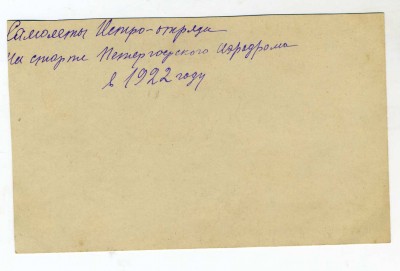 Самолеты Истро-отряда
На старте Петергофского Аэродрома
в 1922 году